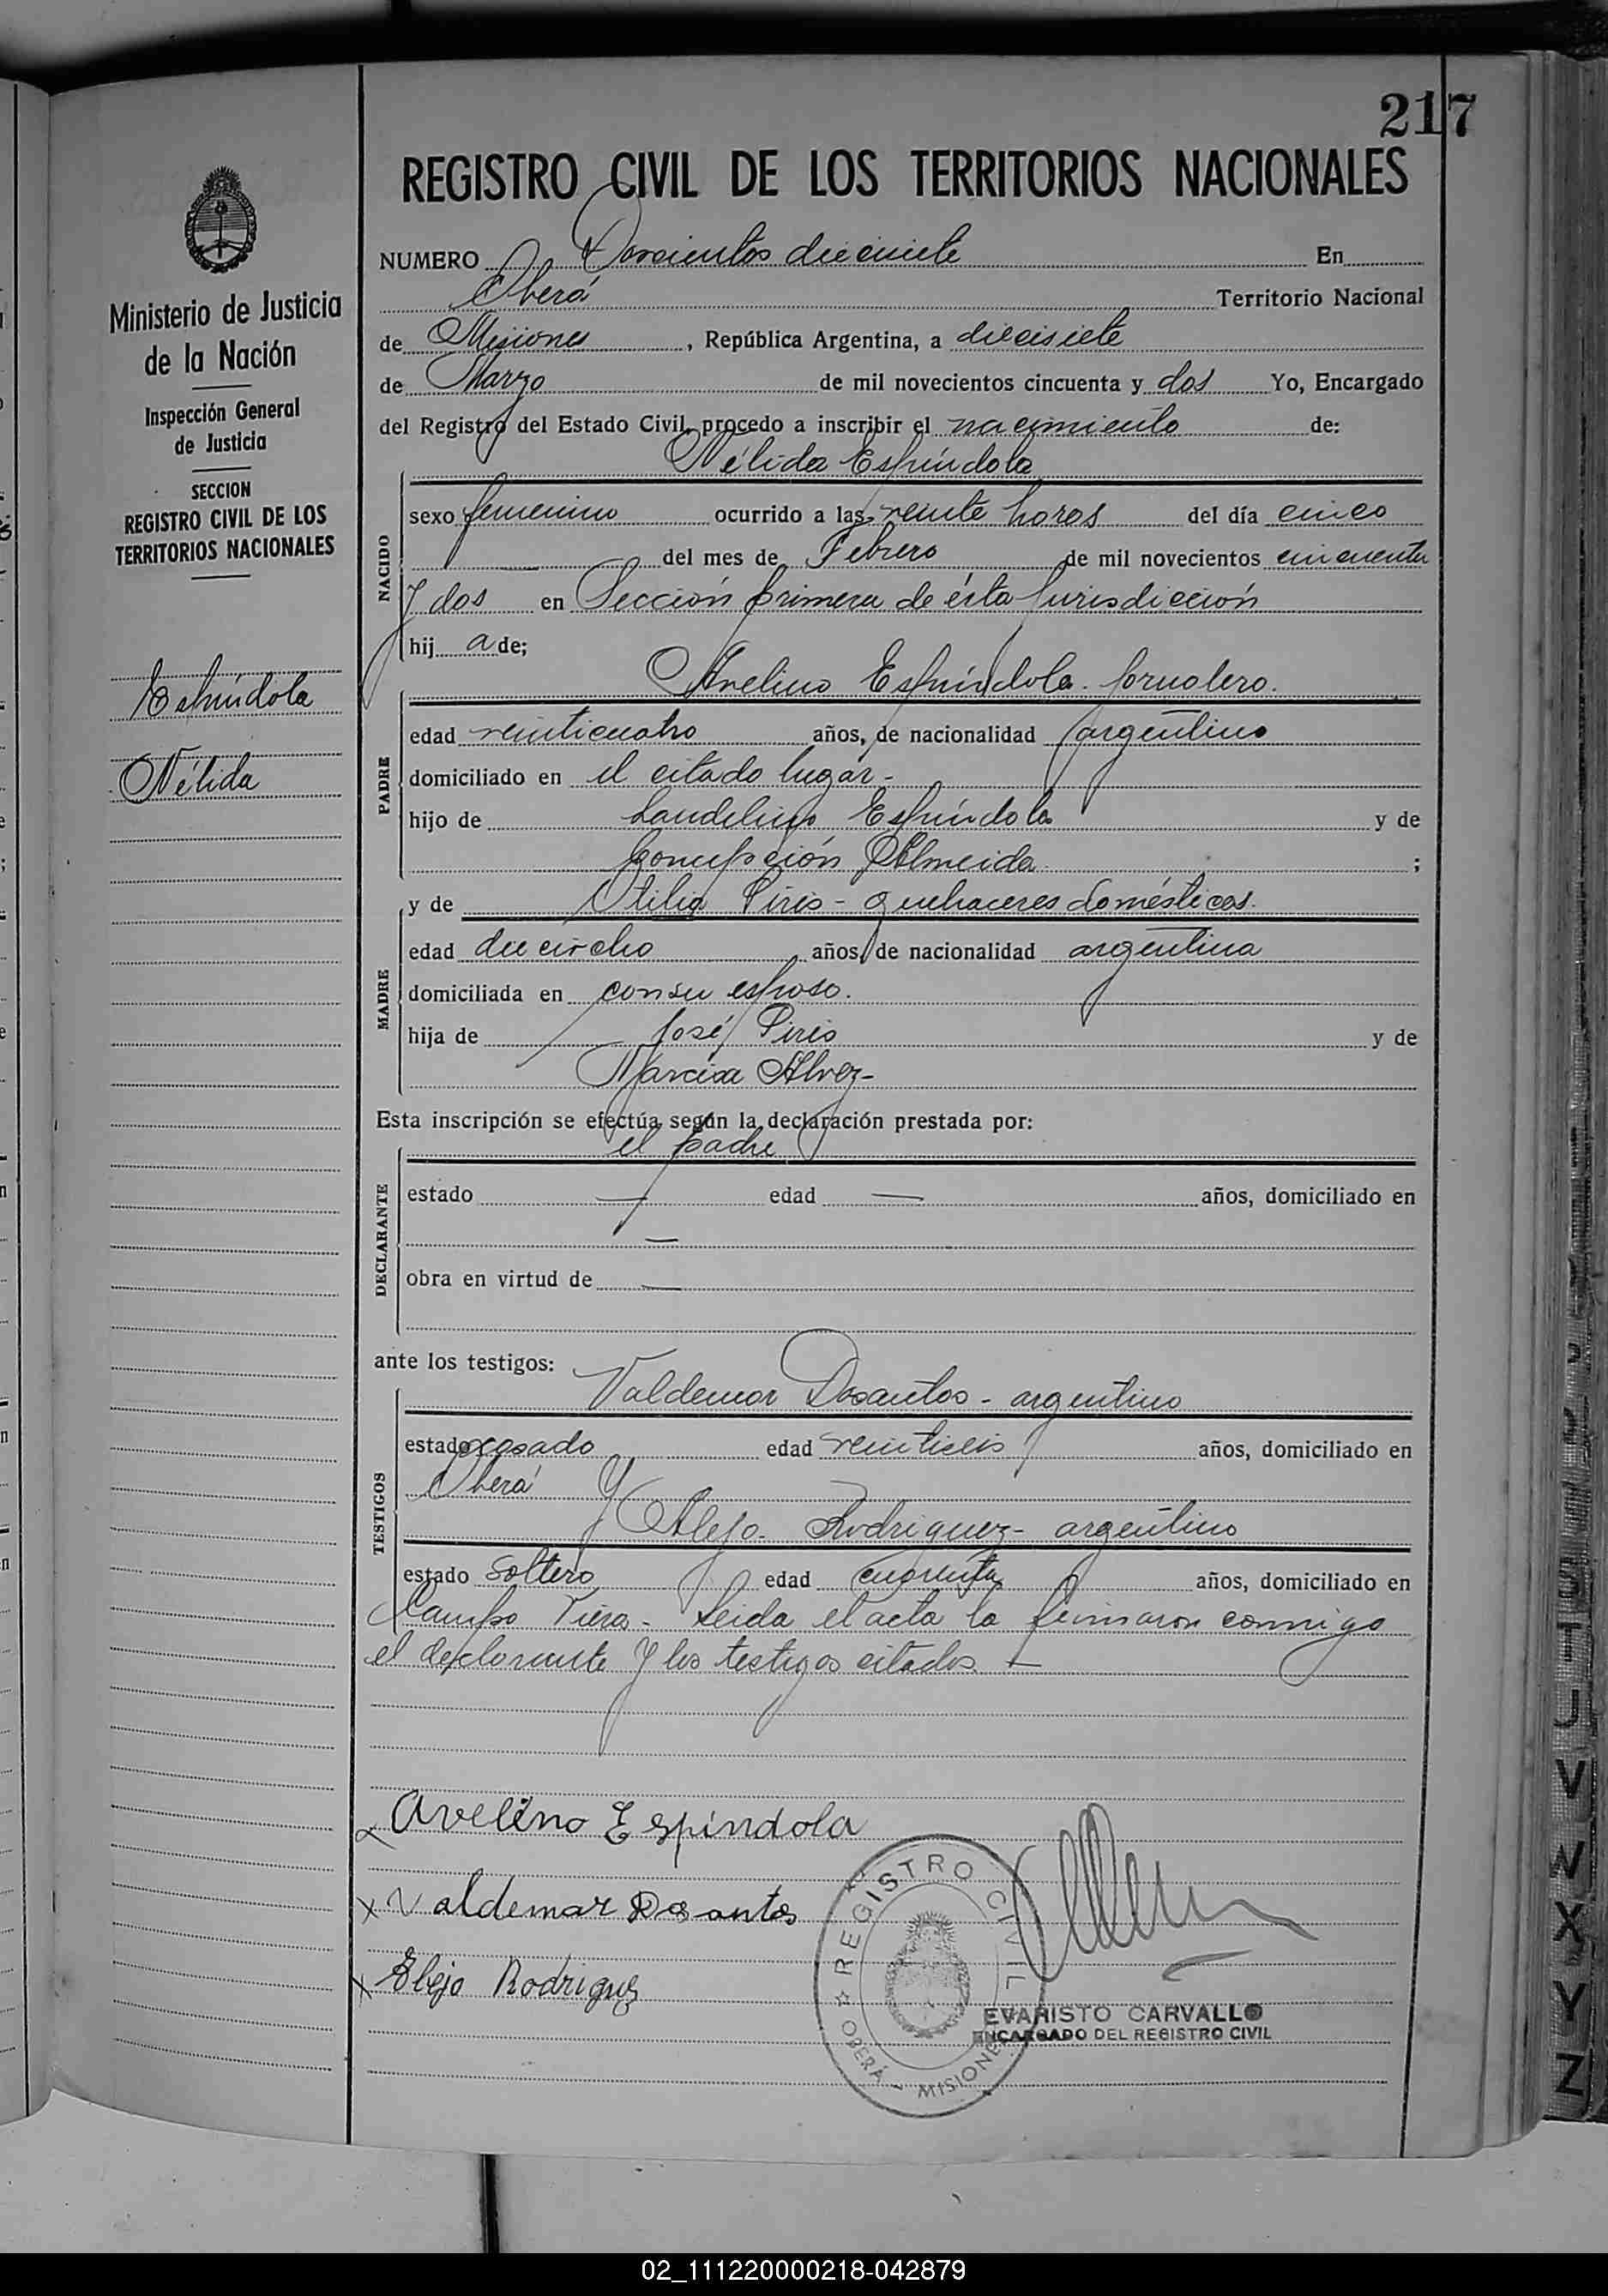 217
REGISTRO CIVIL DE LOS TERRITORIOS NACIONALES
Ministerio de Justicia
de la Nación
Inspección General
de Justicia
SECCION
REGISTRO CIVIL DE LOS
TERRITORIOS NACIONALES
Espíndola
Nélida
NUMERO Doscientos diecisiete En
Oberá Territorio Nacional
de Misiones, República Argentina, a diecisiete
de Marzo de mil novecientos cincuenta y dos Yo, Encargado
del Registro del Estado Civil, procedo a inscribir el nacimiento de:
Nélida Espíndola
NACIDO
sexo femenino ocurrido a las veinte horas del día cinco
del mes de Febrero de mil novecientos cincuenta
y dos en Sección primera de ésta Jurisdicción
hij a de;
Avelino Espíndola. Jornalero.
PADRE
edad veinticuatro años, de nacionalidad argentino
domiciliado en el citado lugar-
hijo de Laudelino Espíndola y de
Concepción Almeida ;
y de Otilia Piris - quehaceres domésticos.
MADRE
edad dieciocho años, de nacionalidad argentina
domiciliada en con su esposo.
hija de José Piris y de
Narcisa Alvez-
Esta inscripción se efectúa según la declaración prestada por:
el padre
DECLARANTE
estado — edad — años, domiciliado en
—
obra en virtud de —
ante los testigos:
Valdemar Dosantos - argentino
TESTIGOS
estado casado edad veintiseis años, domiciliado en
Oberá Y
Alejo Rodriguez - argentino
estado soltero edad cuarenta años, domiciliado en
Campo Viera - Leida el acta la firmaron conmigo
el declarante y los testigos citados. —
Avelino Espíndola
x Valdemar Dosantos
x Elejo Rodriguez
REGISTRO CIVIL
OBERÁ - MISIONES
EVARISTO CARVALLO
ENCARGADO DEL REGISTRO CIVIL
T U V W X Y Z
02_111220000218-042879